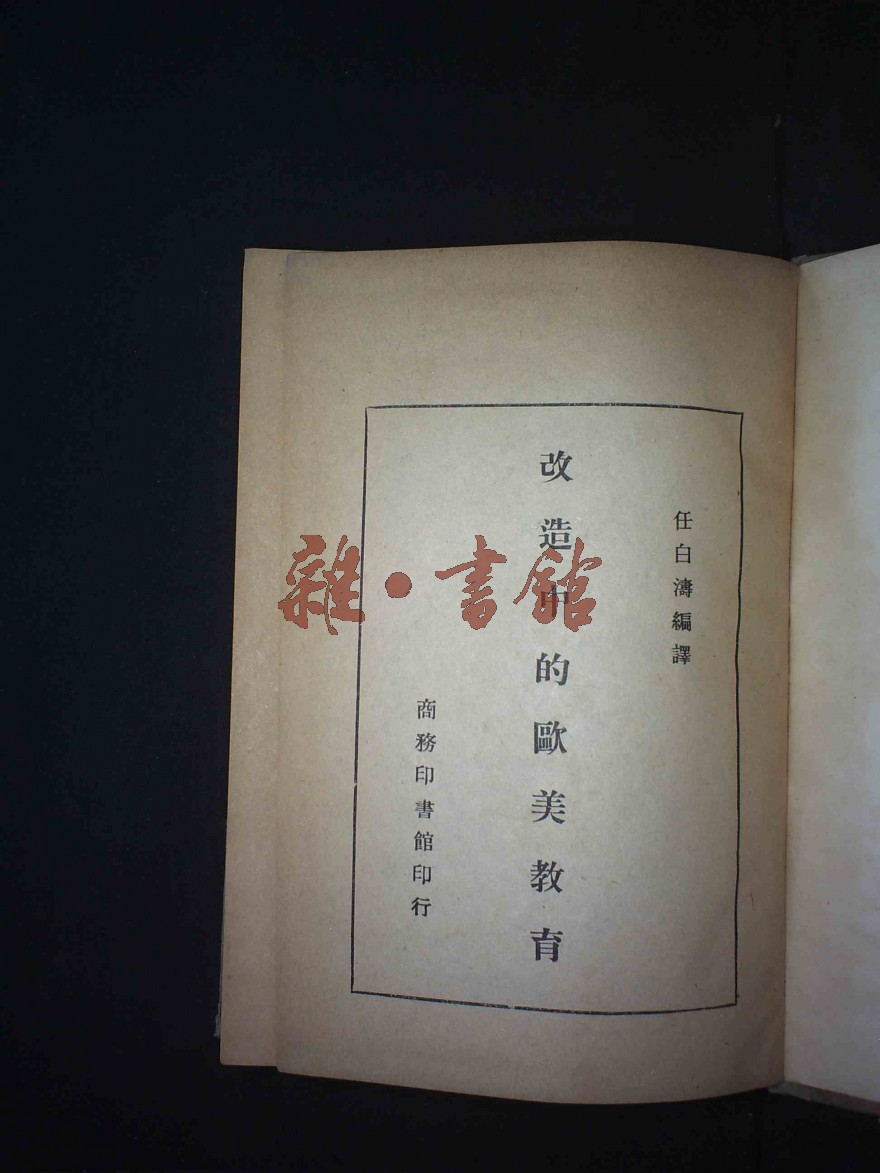 任白濤編譯
改造中的歐美教育
商務印書館印行
雜·書館